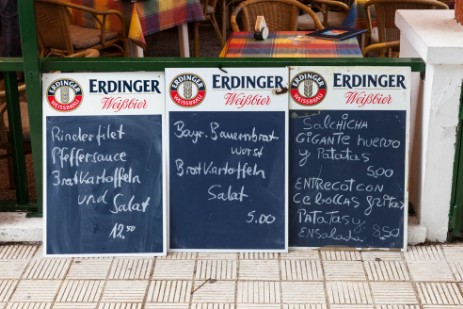 ERDINGER
Weißbier
Rinderfilet
Pfeffersauce
Bratkartoffeln
und Salat
12.50
ERDINGER
Weißbier
Bayr. Bauernbrat
wurst
Bratkartoffeln
Salat
5.00
ERDINGER
Weißbier
SALCHICHA
GIGANTE huevo
y PATATAS
5,00
ENTRECOT CON
CebollAS fritAS
PATATAS y
ENSALADA 8,50